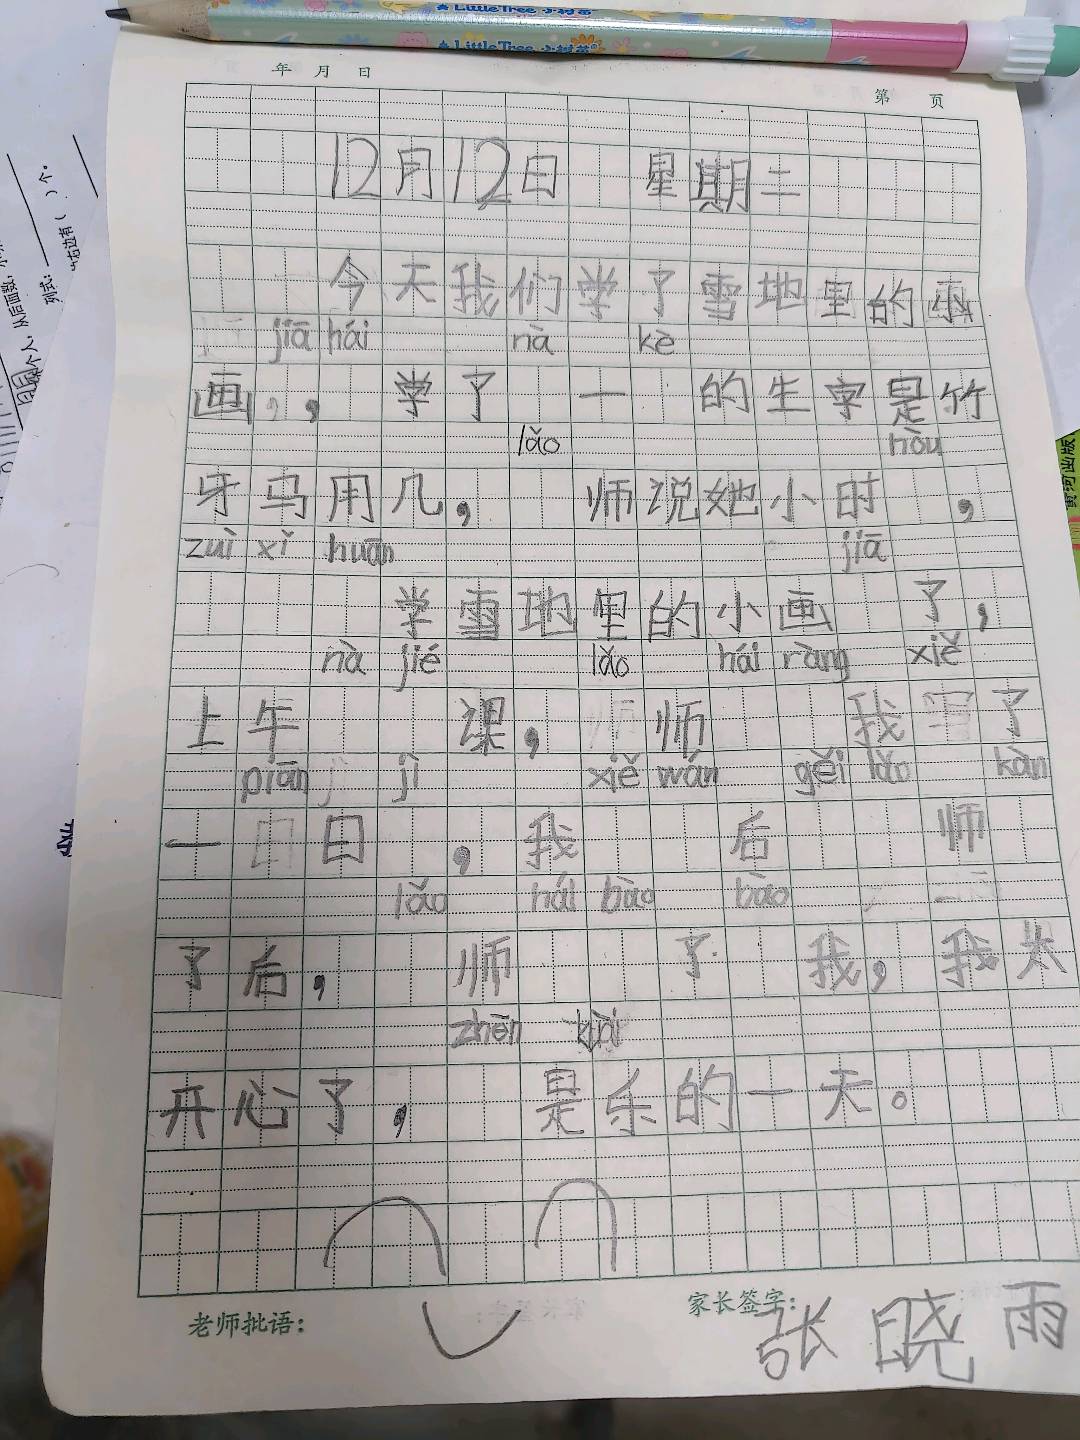 LittleTree 小树苗
LittleTree 小树苗®
年 月 日
第 页
12月12日 星期二
今天我们学了雪地里的小
jiā hái nà kè
画，， 学了 一 的生字是竹
lǎo hòu
牙马用几， 师说她小时 ，
zuì xǐ huān jiā
学雪地里的小画 了，
nà jié lǎo hái ràng xiě
上午 课， 师 我 了
piān jì xiě wán gěi lǎo kàn
一 日 ， 我 后 师
lǎo hái bào bào
了后， 师 了 我，我太
zhēn
开心了， 是乐的一天。
老师批语：
家长签字：
张晓雨
黄河出版
列式：
( )个。
右边有(